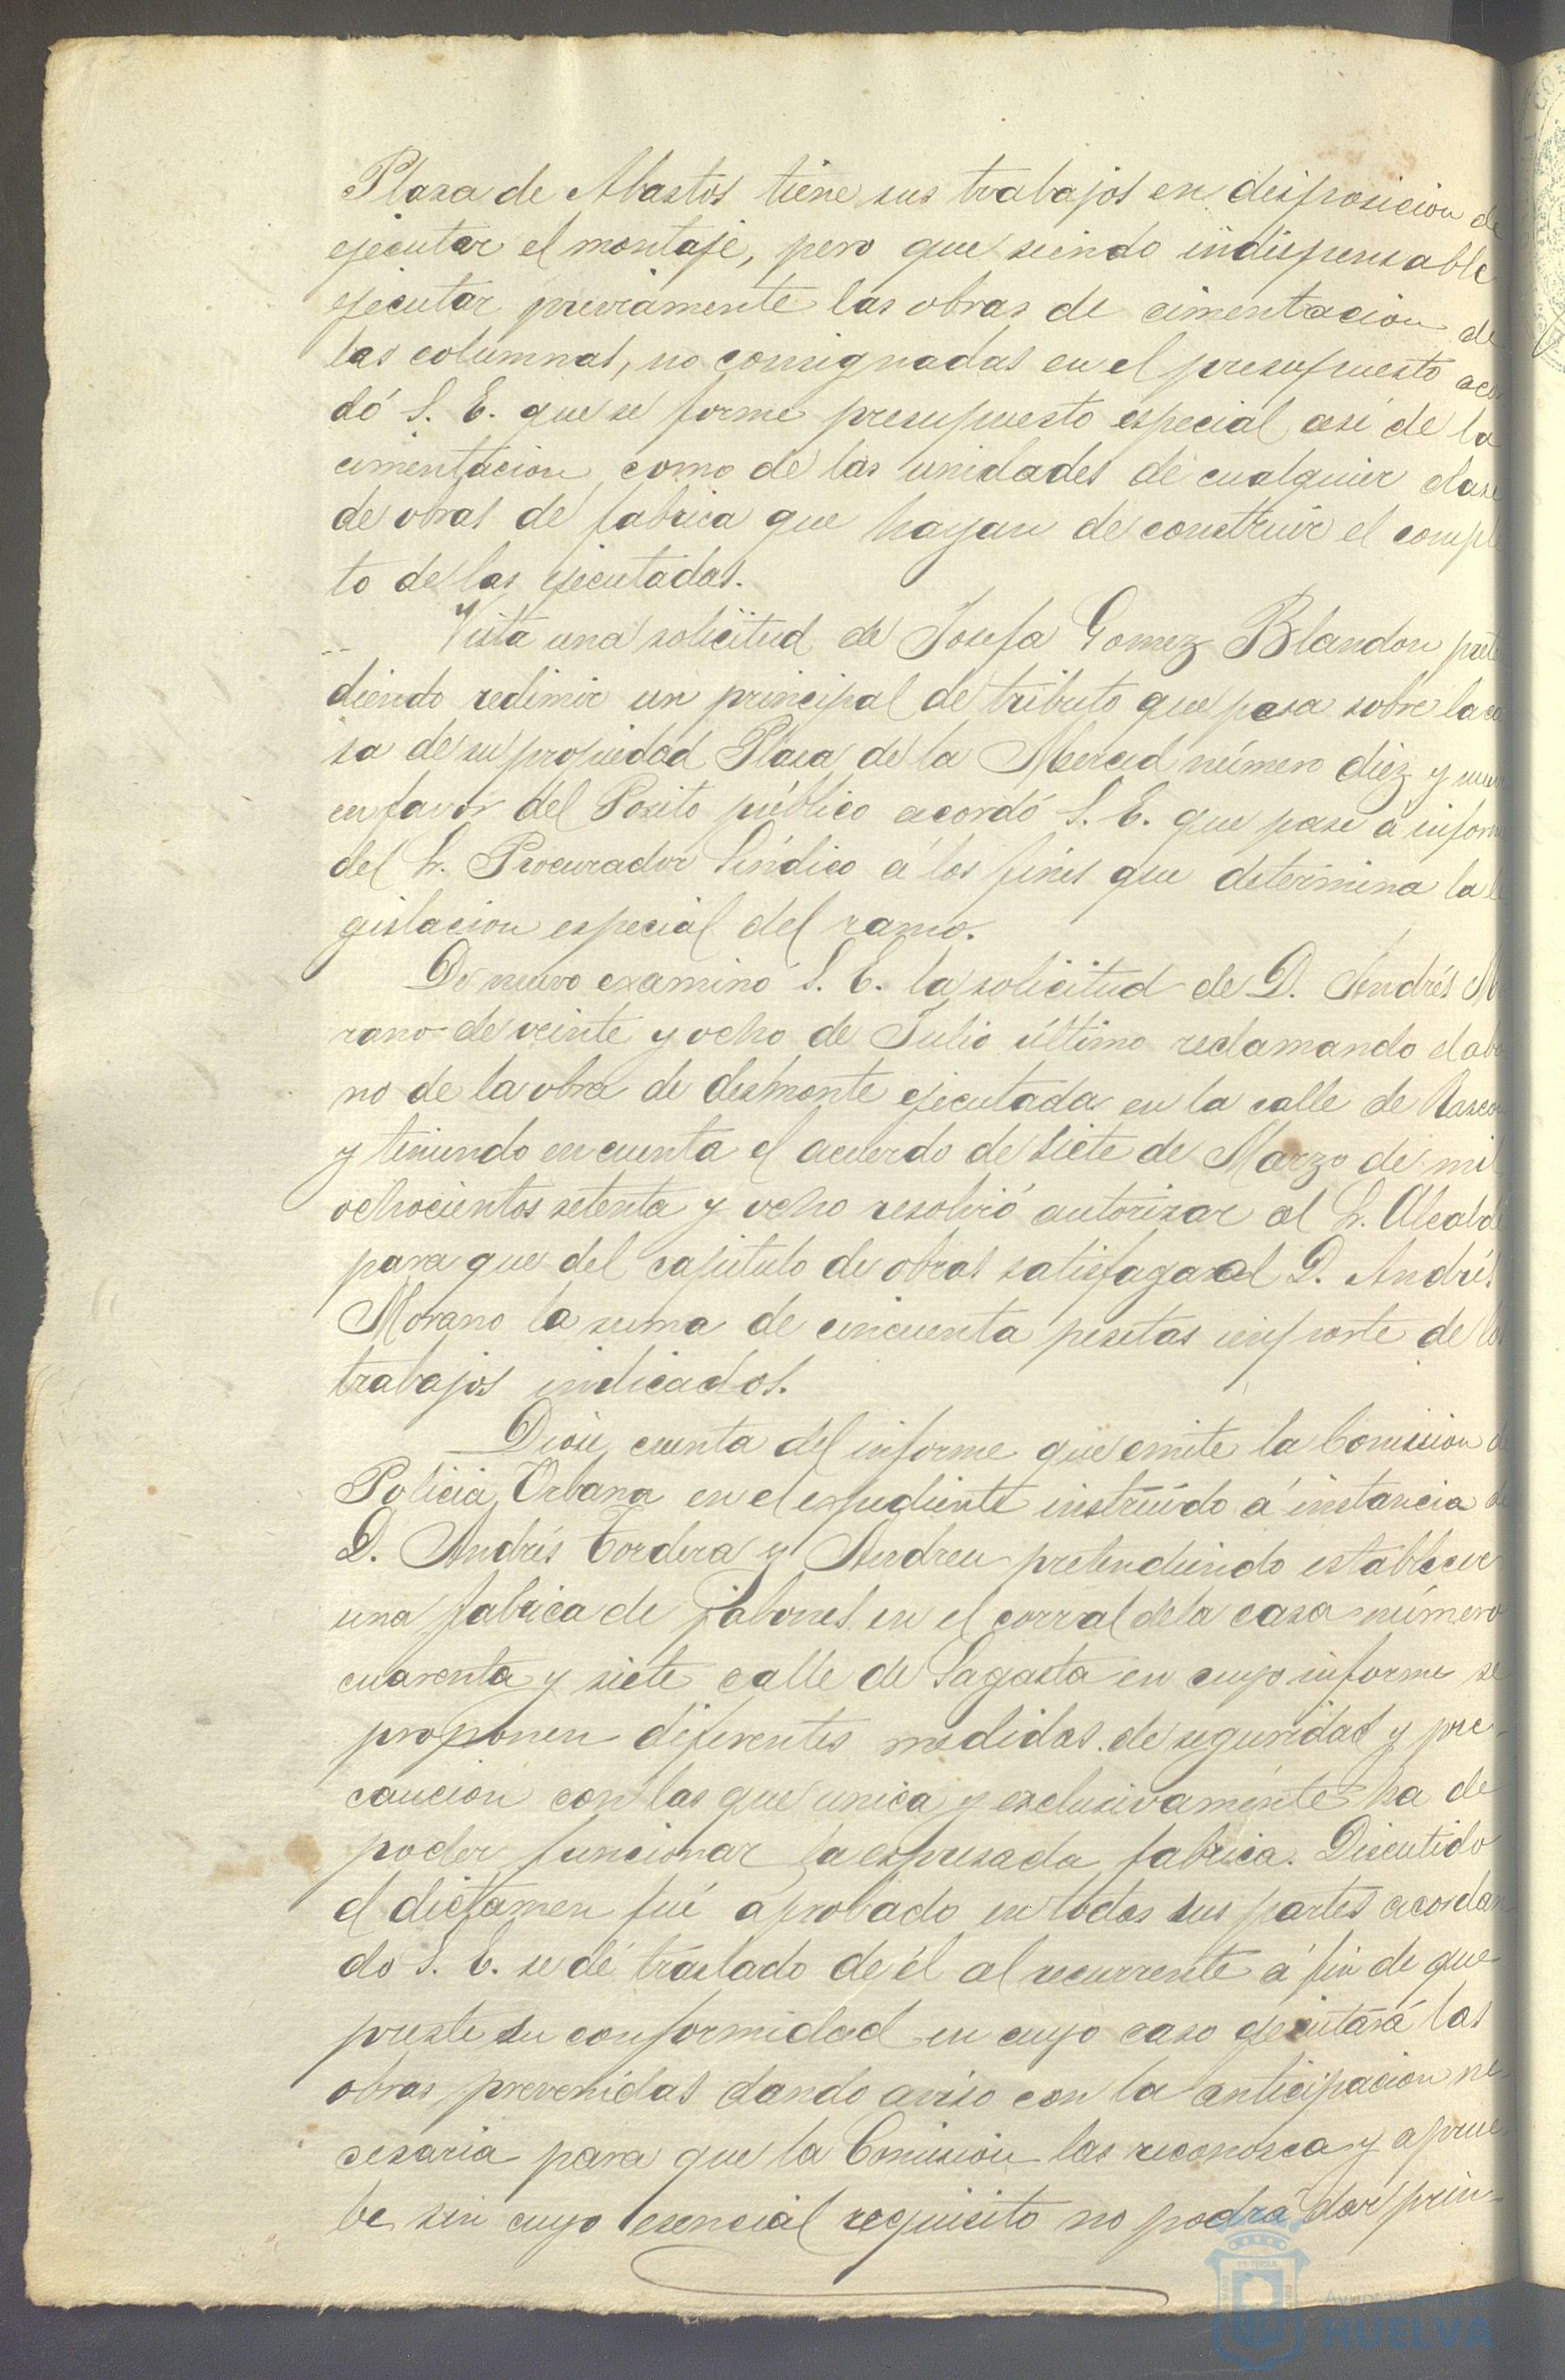 Plasa de Abastos tiene sus trabajos en disposicion de
ejecutar el montaje, pero que siendo indispensable
ejecutar previamente las obras de cimentacion de
las columnas, no consignadas en el presupuesto acor
dó S. E. que se forme presupuesto especial asi de la
cimentacion como de las unidades de cualquier clase
de obras de fabrica que hayan de construir el comple
to de las ejecutadas.
Vista una solicitud de Josefa Gomez Blandon preten
diendo redimir un principal de tributo que pesa sobre la ca
sa de su propiedad Plasa de la Merced número diez y
en favor del Posito público acordó S. E. que pase á informe
del Sr. Procurador Síndico á los fines que determina la le
gislacion especial del ramo.
De nuevo examinó S. E. la solicitud de D. Andrés Mo
rano de veinte y ocho de Julio último reclamando el abo
no de la obra de desmonte ejecutada en la calle de Rascon
y teniendo en cuenta el acuerdo de siete de Marzo de mil
ochocientos setenta y ocho resolvió autorisar al Sr. Alcalde
para que del capitulo de obras satisfaga al D. Andrés
Morano la suma de cincuenta pesetas importe de los
trabajos indicados.
Diose cuenta del informe que emite la Comision de
Policia Urbana en el espediente instruido á instancia de
D. Andrés Tordera y Andreu pretendiendo establecer
una fabrica de jabones en el corral de la casa número
cuarenta y siete calle de Sagasta en cuyo informe se
proponen diferentes medidas de seguridad y pre-
caucion con las que unica y esclusivamente ha de
poder funcionar la espresada fabrica. Discutido
el dictamen fué aprobado en todas sus partes acordan
do S. E. se dé traslado de él al recurrente á fin de que
preste su conformidad en cuyo caso ejecutará las
obras prevenidas dando aviso con la anticipacion ne-
cesaria para que la Comision las reconosca y aprue-
be sin cuyo esencial requisito no podrá dar prin-
HUELVA